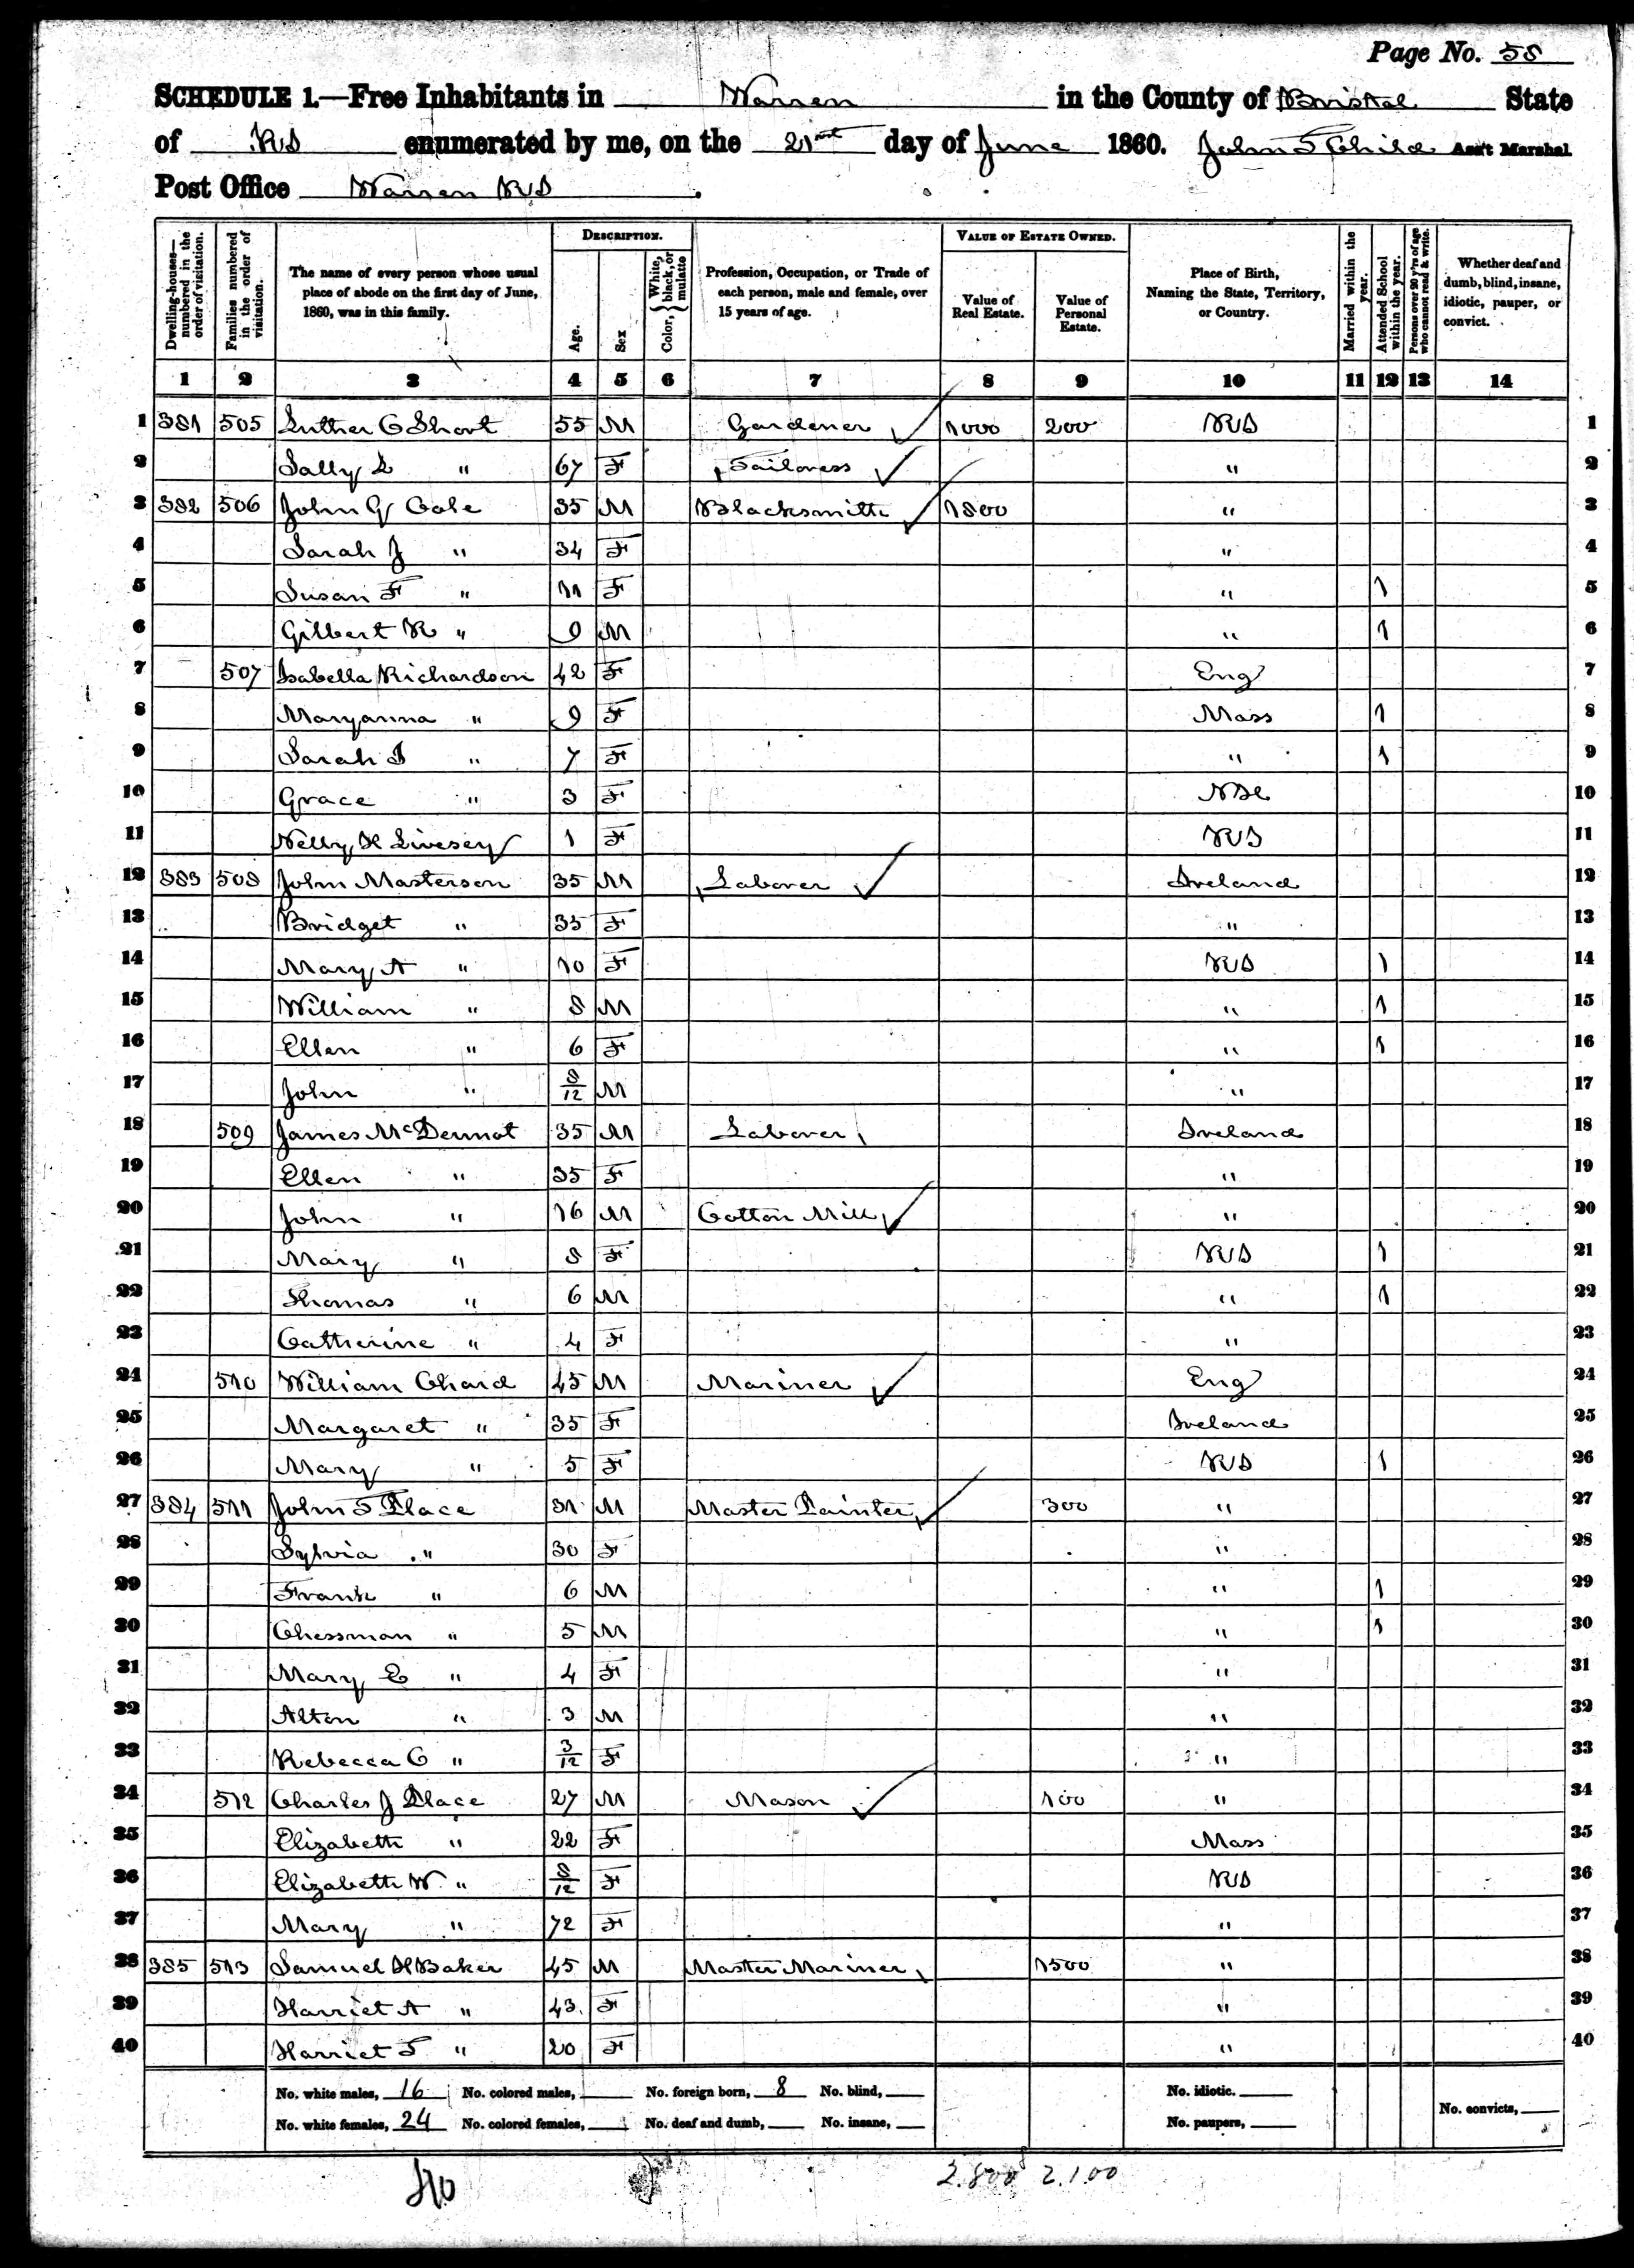 Page No. 58
SCHEDULE 1.—Free Inhabitants in Warren in the County of Bristol State
of RI enumerated by me, on the 21st day of June 1860. John T Child Ass't Marshal
Post Office Warren RI.
Dwelling-houses—numbered in the order of visitation. Families numbered in the order of visitation. The name of every person whose usual place of abode on the first day of June, 1860, was in this family. DESCRIPTION. Age. Sex Color, { White, black, or mulatto Profession, Occupation, or Trade of each person, male and female, over 15 years of age. VALUE OF ESTATE OWNED. Value of Real Estate. Value of Personal Estate. Place of Birth, Naming the State, Territory, or Country. Married within the year. Attended School within the year. Persons over 20 y'rs of age who cannot read & write. Whether deaf and dumb, blind, insane, idiotic, pauper, or convict.
1 2 3 4 5 6 7 8 9 10 11 12 13 14
1 381 505 Luther C Short 55 M Gardener 1000 200 RI 1
2 Sally L " 67 F Tailoress " 2
3 382 506 John G Cole 35 M Blacksmith 1800 " 3
4 Sarah J " 34 F " 4
5 Susan F " 11 F " 1 5
6 Gilbert R " 9 M " 1 6
7 507 Isabella Richardson 42 F Eng 7
8 Maryanna " 9 F Mass 1 8
9 Sarah I " 7 F " 1 9
10 Grace " 3 F 10
11 Nelly H Livesey 1 F RI 11
12 383 508 John Masterson 35 M Laborer Ireland 12
13 Bridget " 35 F " 13
14 Mary A " 10 F RI 1 14
15 William " 8 M " 1 15
16 Ellen " 6 F " 1 16
17 John " 8/12 M " 17
18 509 James McDermot 35 M Laborer Ireland 18
19 Ellen " 35 F " 19
20 John " 16 M Cotton Mill " 20
21 Mary " 8 F RI 1 21
22 Thomas " 6 M " 1 22
23 Catherine " 4 F " 23
24 510 William Chard 45 M Mariner Eng 24
25 Margaret " 35 F Ireland 25
26 Mary " 5 F RI 1 26
27 384 511 John T Place 31 M Master Painter 300 " 27
28 Sylvia " 30 F " 28
29 Frank " 6 M " 1 29
30 Chessman " 5 M " 1 30
31 Mary E " 4 F " 31
32 Alton " 3 M " 32
33 Rebecca C " 3/12 F " 33
34 512 Charles J Place 27 M Mason 100 " 34
35 Elizabeth " 22 F Mass 35
36 Elizabeth W " 8/12 F RI 36
37 Mary " 72 F " 37
38 385 513 Samuel H Baker 45 M Master Mariner 1500 " 38
39 Harriet A " 43 F " 39
40 Harriet T " 20 F " 40
No. white males, 16 No. colored males, No. foreign born, 8 No. blind, No. idiotic.
No. white females, 24 No. colored females, No. deaf and dumb, No. insane, No. paupers, No. convicts,
2.800 2.100